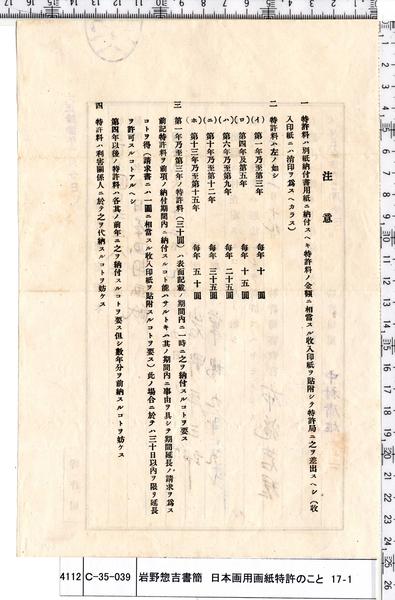 注意
一 特許料ハ別紙納付書用紙ニ納付スヘキ特許料ノ金額ニ相當スル收入印紙ヲ貼附シテ特許局ニ之ヲ差出スヘシ（收
入印紙ニハ消印ヲ爲スヘカラス）
二 特許料ハ左ノ如シ
（イ）第一年乃至第三年 每年 十圓
（ロ）第四年及第五年 每年 十五圓
（ハ）第六年乃至第九年 每年 二十五圓
（ニ）第十年乃至第十二年 每年 三十五圓
（ホ）第十三年乃至第十五年 每年 五十圓
三 第一年乃至第三年ノ特許料（三十圓）ハ表面記載ノ期間內ニ一時ニ之ヲ納付スルコトヲ要ス
前記特許料ヲ前項ノ納付期間內ニ納付スルコト能ハサルトキハ其ノ期間內ニ事由ヲ具シテ期間延長ノ請求ヲ爲ス
コトヲ得（請求書ニハ一圓ニ相當スル收入印紙ヲ貼附スルコトヲ要ス）此ノ場合ニ於テハ三十日以內ヲ限リ延長
ヲ許可スルコトアルヘシ
第四年以後ノ特許料ハ各其ノ前年ニ之ヲ納付スルコトヲ要ス但シ數年分ヲ前納スルコトヲ妨ケス
四 特許料ハ利害關係人ニ於テ之ヲ代納スルコトヲ妨ケス
4112 C-35-039 岩野惣吉書簡 日本画用画紙特許のこと 17-1